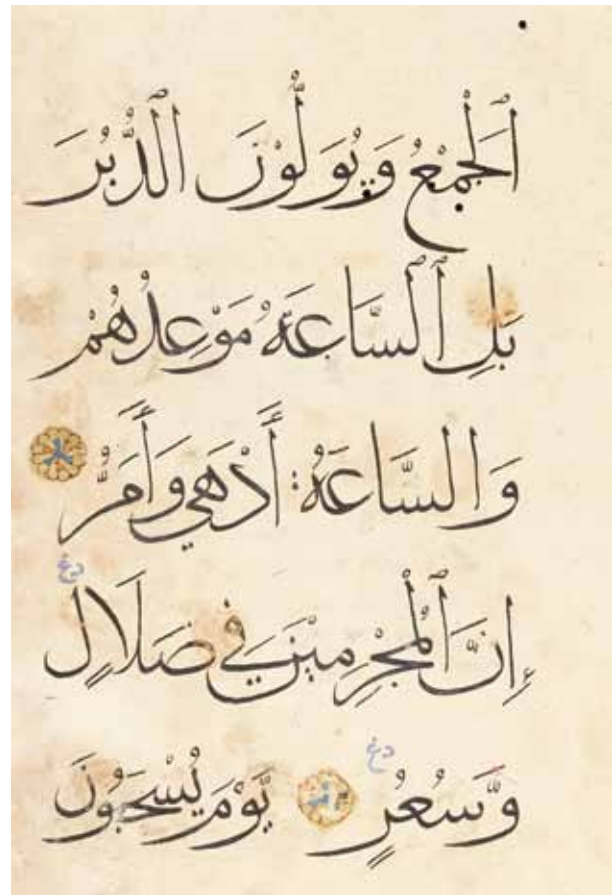 ٱلْجَمْعُ وَيُوَلُّوْنَ ٱلدُّبُرَ
بَلِ ٱلسَّاعَةُ مَوْعِدُهُمْ
وَالسَّاعَةُ أَدْهَي وَأَمَرُّ
إِنَّ ٱلْمُجْرِمِيْنَ فِي ضَلَالٍ
وَّسُعُرٍ يَوْمَ يُسْحَبُوْنَ